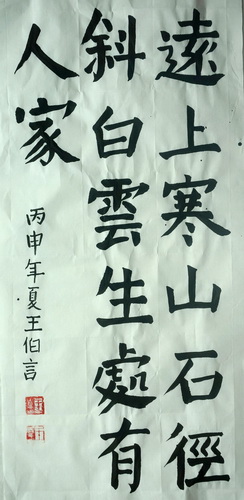 遠上寒山石徑
斜白雲生處有
人家
丙申年夏王伯言